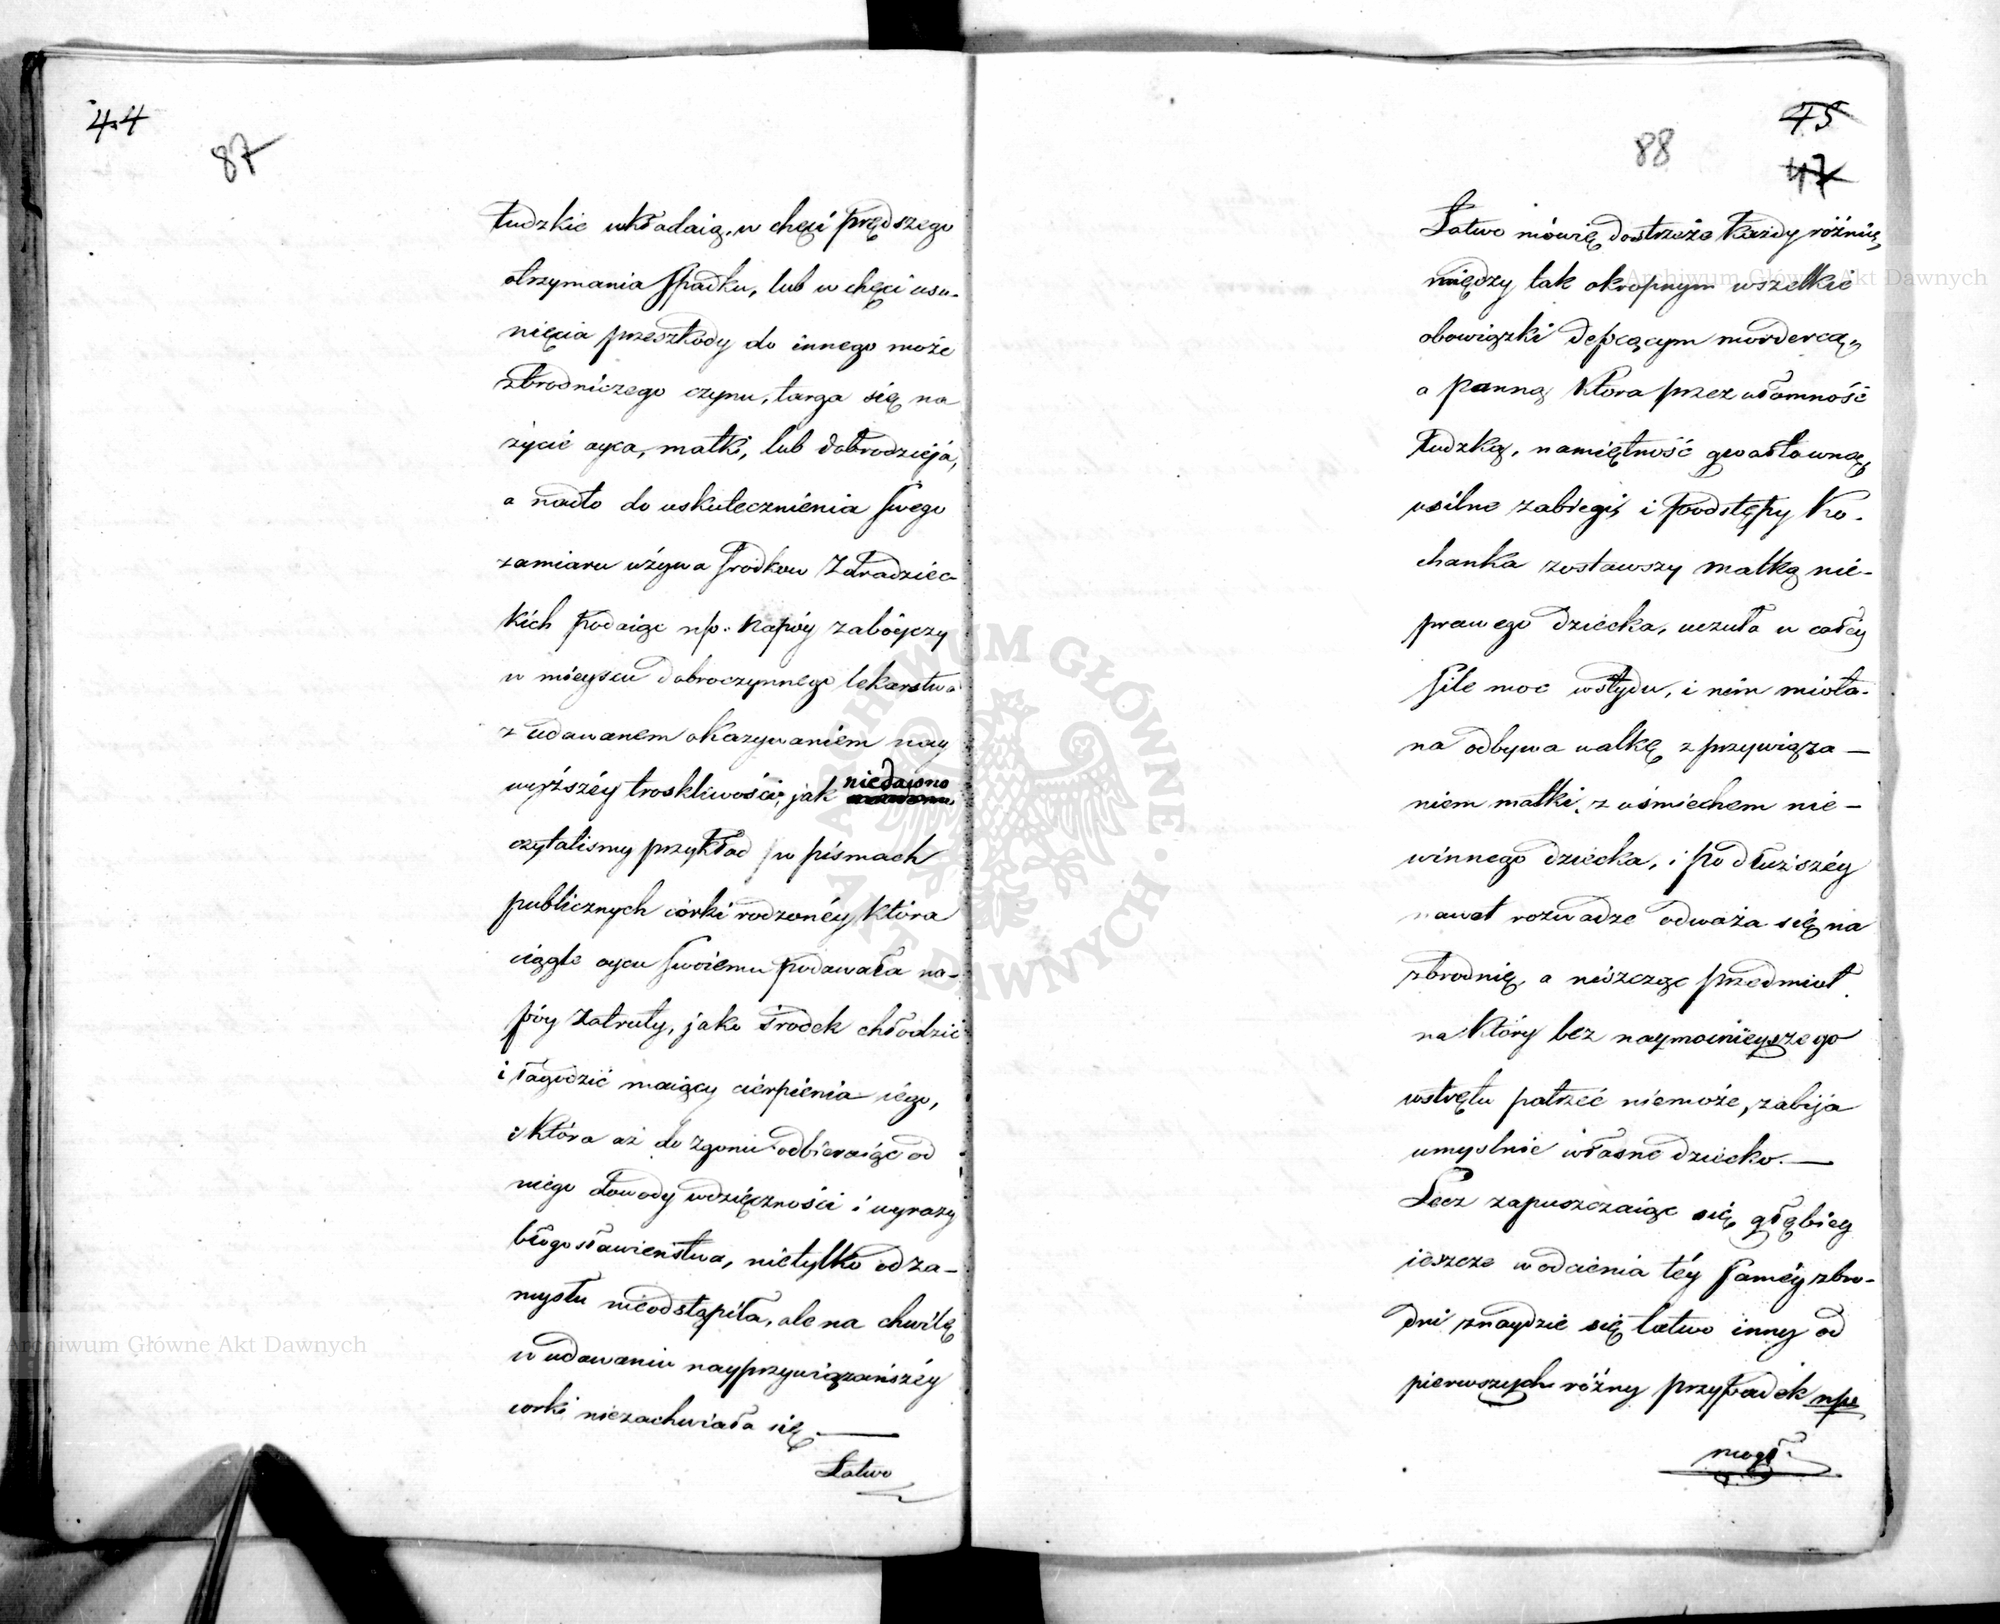 44
87
ludzkie wkładaią, w chęci prędszego
otrzymania spadku, lub w chęci usu-
nięcia przeszkody do innego może
zbrodniczego czynu, targa się na
życie oyca, matki, lub dobrodzieja,
a nadto do uskutecznienia swego
zamiaru używa srodkow zdradziec-
kich podaiąc np: napóy zabóyczy
w mieyscu dobroczynnego lekarstwa
z udawanem okazywaniem nay
wyższéy troskliwości, jak niedawno
czytalismy przykład w pismach
publicznych córki rodzonéy, która
ciągle oycu swoiemu podawała na-
póy zatruty, jako środek chłodzić
i łagodzić maiący cierpienia iego,
i która aż do zgonu odbieraiąc od
niego dowody wdzięczności i wyrazy
błogosławieństwa, nietylko od za-
mysłu nieodstąpiła, ale na chwilę
w udawaniu nayprzywiązańszéy
corki niezachwiała się. —
Łatwo
45
47
88
Łatwo mówię dostrzeże każdy różnicę
między tak okropnym wszelkie
obowiązki depcącym mordercą,
a panną która przez ułomność
ludzką, namiętność gwałtowną,
usilne zabiegi, i podstępy ko-
chanka zostawszy matką nie-
prawego dziecka, uczuła w całéy
sile moc wstydu, i nim miota-
na odbywa walkę z przywiąza-
niem matki, z uśmiechem nie-
winnego dziecka, i po dłuższéy
nawet rozwadze odważa się na
zbrodnię, a niszcząc przedmiot
na który bez naymocnieyszego
wstrętu patrzeć niemoże, zabija
umyslnie własne dziecko. —
Lecz zapuszczaiąc się głębiey
ieszcze w odcienia téy saméy zbro-
dni znaydzie się łatwo inny od
pierwszych różny przypadek np:
mogł
Archiwum Główne Akt Dawnych
Archiwum Główne Akt Dawnych
ARCHIWUM GŁÓWNE AKT DAWNYCH